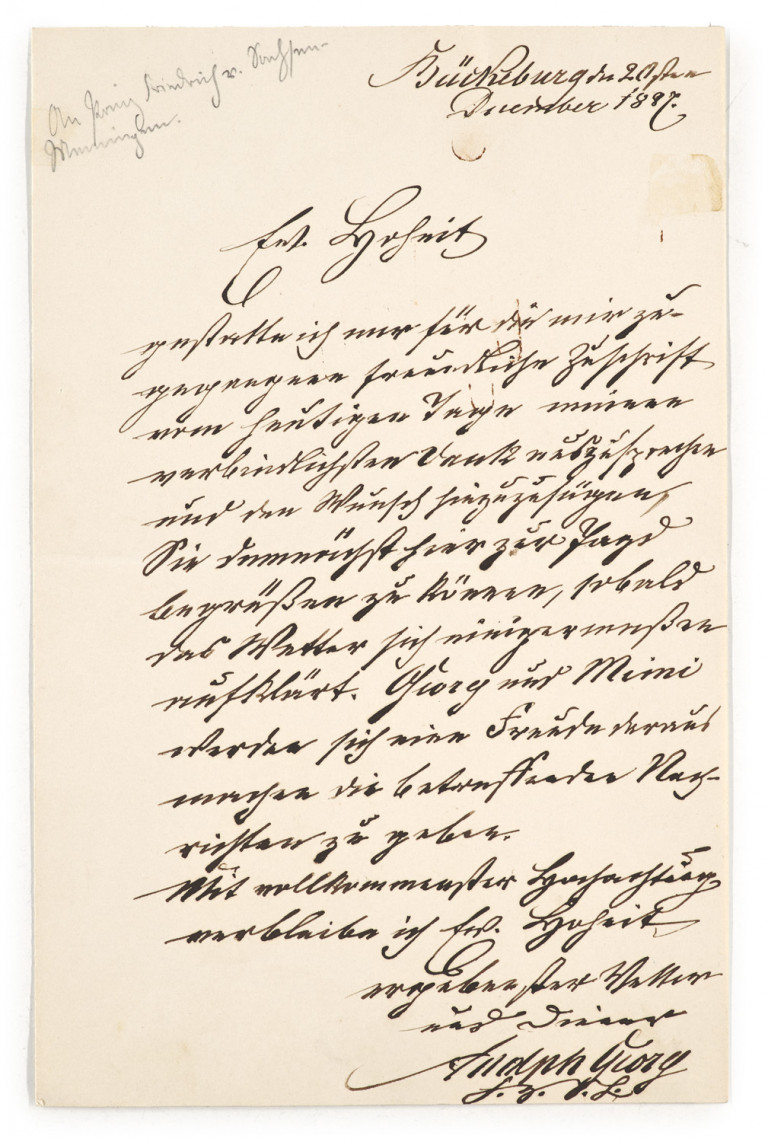 An Prinz Friedrich v. Sachsen-
Meiningen.
Bückeburg den 20sten
December 1887.
Ew. Hoheit
gestatte ich mir für die mir zu-
gegangene freundliche Zuschrift
vom heutigen Tage meinen
verbindlichsten Dank auszusprechen
und den Wunsch hinzuzufügen,
Sie demnächst hier zur Jagd
begrüßen zu können, sobald
das Wetter sich einigermaßen
aufklärt. Georg und
werden sich eine Freude daraus
machen die betreffenden Nach-
richten zu geben.
Mit vollkommenster Hochachtung
verbleibe ich Ew. Hoheit
ergebenster Vetter
und Diener
Adolph Georg
F. z. S. L.